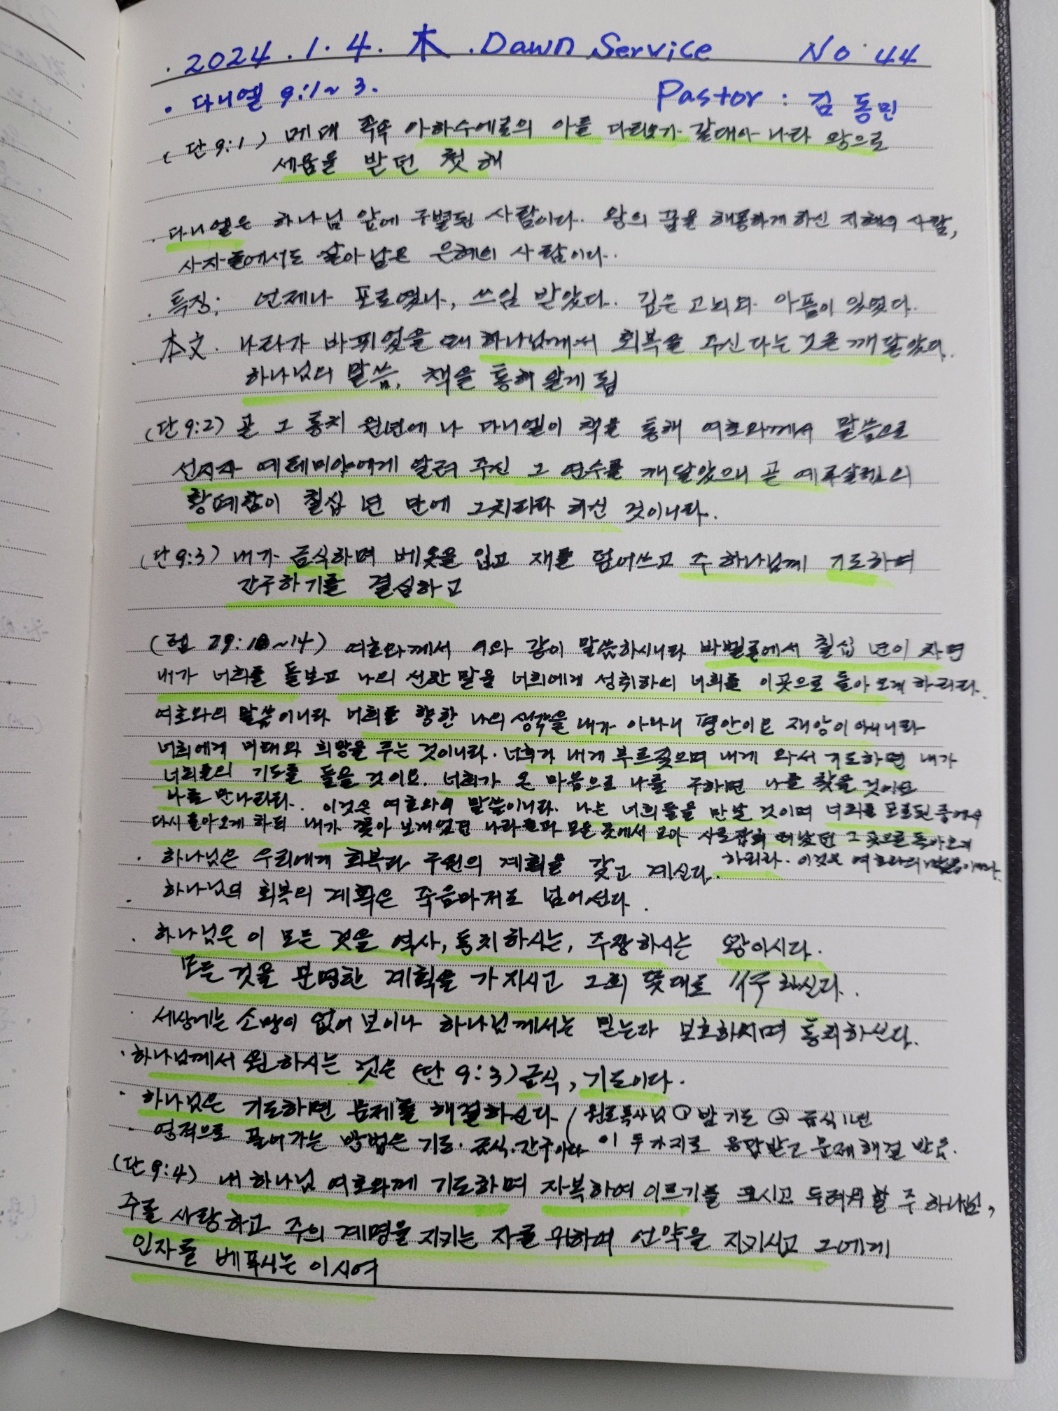 . 2024. 1. 4. 木. Dawn Service No 44
• 다니엘 9:1~3. Pastor : 김동민
(단 9:1) 메대 족속 아하수에로의 아들 다리오가 갈대아 나라 왕으로
세움을 받던 첫 해
. 다니엘은 하나님 앞에 구별된 사람이다. 왕의 꿈을 해몽하게 하신 지혜의 사람,
사자굴에서도 살아남은 은혜의 사람이다.
. 특징; 언제나 포로였나, 쓰임 받았다. 깊은 고뇌와 아픔이 있었다.
. 本文. 나라가 바뀌었을 때 하나님께서 회복을 주신다는 것을 깨달았다.
하나님의 말씀, 책을 통해 알게 됨
(단 9:2) 곧 그 통치 원년에 나 다니엘이 책을 통해 여호와께서 말씀으로
선지자 예레미야에게 알려 주신 그 연수를 깨달았으니 곧 예루살렘의
황폐함이 칠십 년 만에 그치리라 하신 것이니라.
(단 9:3) 내가 금식하며 베옷을 입고 재를 덮어쓰고 주 하나님께 기도하며
간구하기를 결심하고
(렘 29:10~14) 여호와께서 이와 같이 말씀하시니라 바벨론에서 칠십 년이 차면
내가 너희를 돌보고 나의 선한 말을 너희에게 성취하여 너희를 이곳으로 돌아오게 하리라.
여호와의 말씀이니라 너희를 향한 나의 생각을 내가 아나니 평안이요 재앙이 아니니라
너희에게 미래와 희망을 주는 것이니라. 너희가 내게 부르짖으며 내게 와서 기도하면 내가
너희들의 기도를 들을 것이요. 너희가 온 마음으로 나를 구하면 나를 찾을 것이요
나를 만나리라. 이것은 여호와의 말씀이니라. 나는 너희들을 만날 것이며 너희를 포로된 중에서
다시 돌아오게 하되 내가 쫓아 보내었던 나라들과 모든 곳에서 모아 사로잡혀 떠났던 그 곳으로 돌아오게
하리라. 이것은 여호와의 말씀이니라.
. 하나님은 우리에게 회복과 구원의 계획을 갖고 계신다.
. 하나님의 회복의 계획은 죽음마저도 넘어선다.
. 하나님은 이 모든 것을 역사, 통치하시는, 주장하시는 왕이시다.
모든 것을 분명한 계획을 가지시고 그의 뜻대로 行하신다.
. 세상에는 소망이 없어 보이나 하나님께서는 믿는자 보호하시며 통치하신다.
. 하나님께서 원하시는 것은 (단 9:3) 금식, 기도이다.
. 하나님은 기도하면 문제를 해결하신다 (원로목사님 ① 밤기도 ② 금식 1년
. 영적으로 풀어가는 방법은 기도. 금식. 간구이다 이 두가지로 응답받고 문제해결 받음.
(단 9:4) 내 하나님 여호와께 기도하며 자복하여 이르기를 크시고 두려워할 주 하나님,
주를 사랑하고 주의 계명을 지키는 자를 위하여 언약을 지키시고 그에게
인자를 베푸시는 이시여